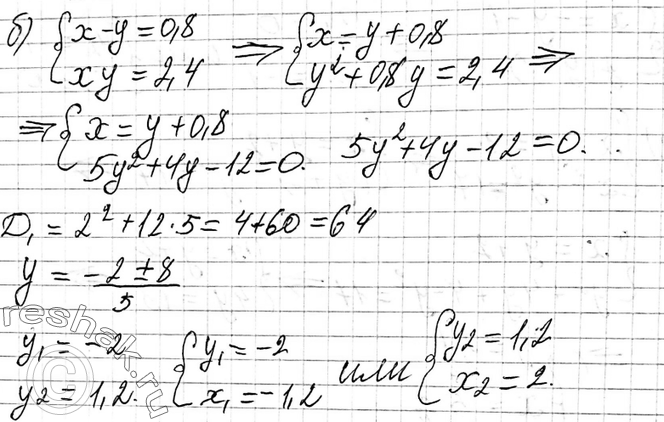 б) {x-y=0,8 ⇒ {x=y+0,8
{xy=2,4 {y²+0,8y=2,4 ⇒
⇒ {x=y+0,8
{5y²+4y-12=0. 5y²+4y-12=0.
D₁=2²+12·5=4+60=64
y=(-2±8)/5
y₁=-2 {y₁=-2 или {y₂=1,2
y₂=1,2. {x₁=-1,2 {x₂=2.
reshak.ru